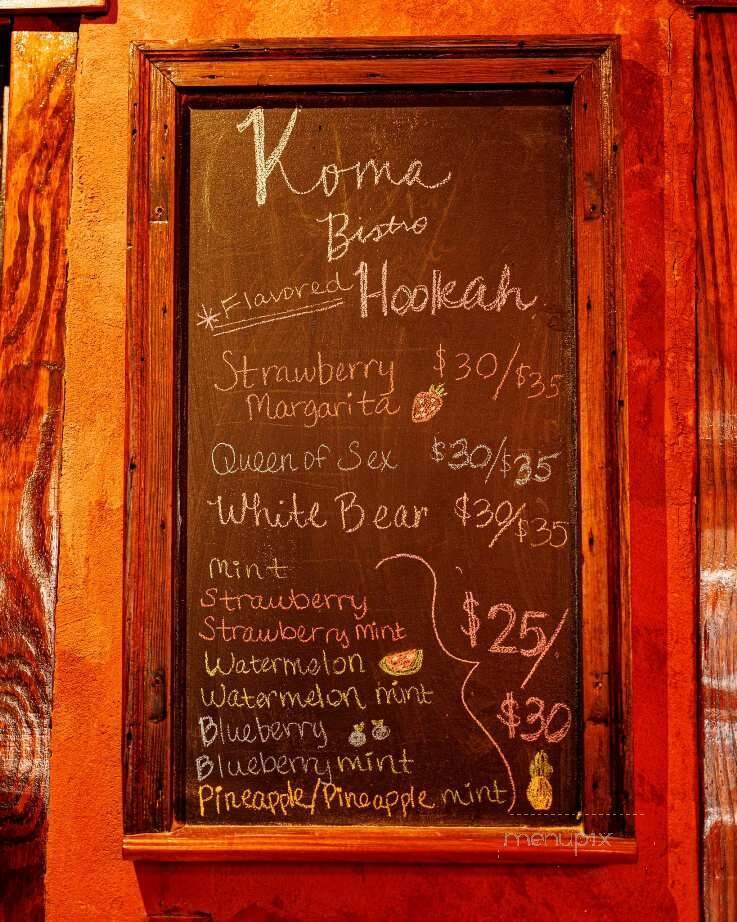 Koma
Bistro
*Flavored Hookah
Strawberry $30/$35
Margarita
Queen of Sex $30/$35
White Bear $30/$35
mint
Strawberry
Strawberry mint $25/
Watermelon
Watermelon mint
Blueberry $30
Blueberry mint
Pineapple/Pineapple mint
menupix